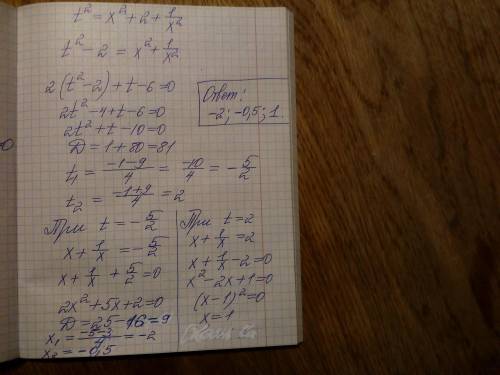 t² = x² + 2 + 1/x²
t² - 2 = x² + 1/x²
2(t² - 2) + t - 6 = 0
2t² - 4 + t - 6 = 0
2t² + t - 10 = 0
D = 1 + 80 = 81
t₁ = (-1-9)/4 = -10/4 = -5/2
t₂ = (-1+9)/4 = 2
При t = -5/2
x + 1/x = -5/2
x + 1/x + 5/2 = 0
2x² + 5x + 2 = 0
D = 25 - 16 = 9
x₁ = (-5-3)/4 = -2
x₂ = -0,5
При t = 2
x + 1/x = 2
x + 1/x - 2 = 0
x² - 2x + 1 = 0
(x - 1)² = 0
x = 1
Ответ:
-2; -0,5; 1.